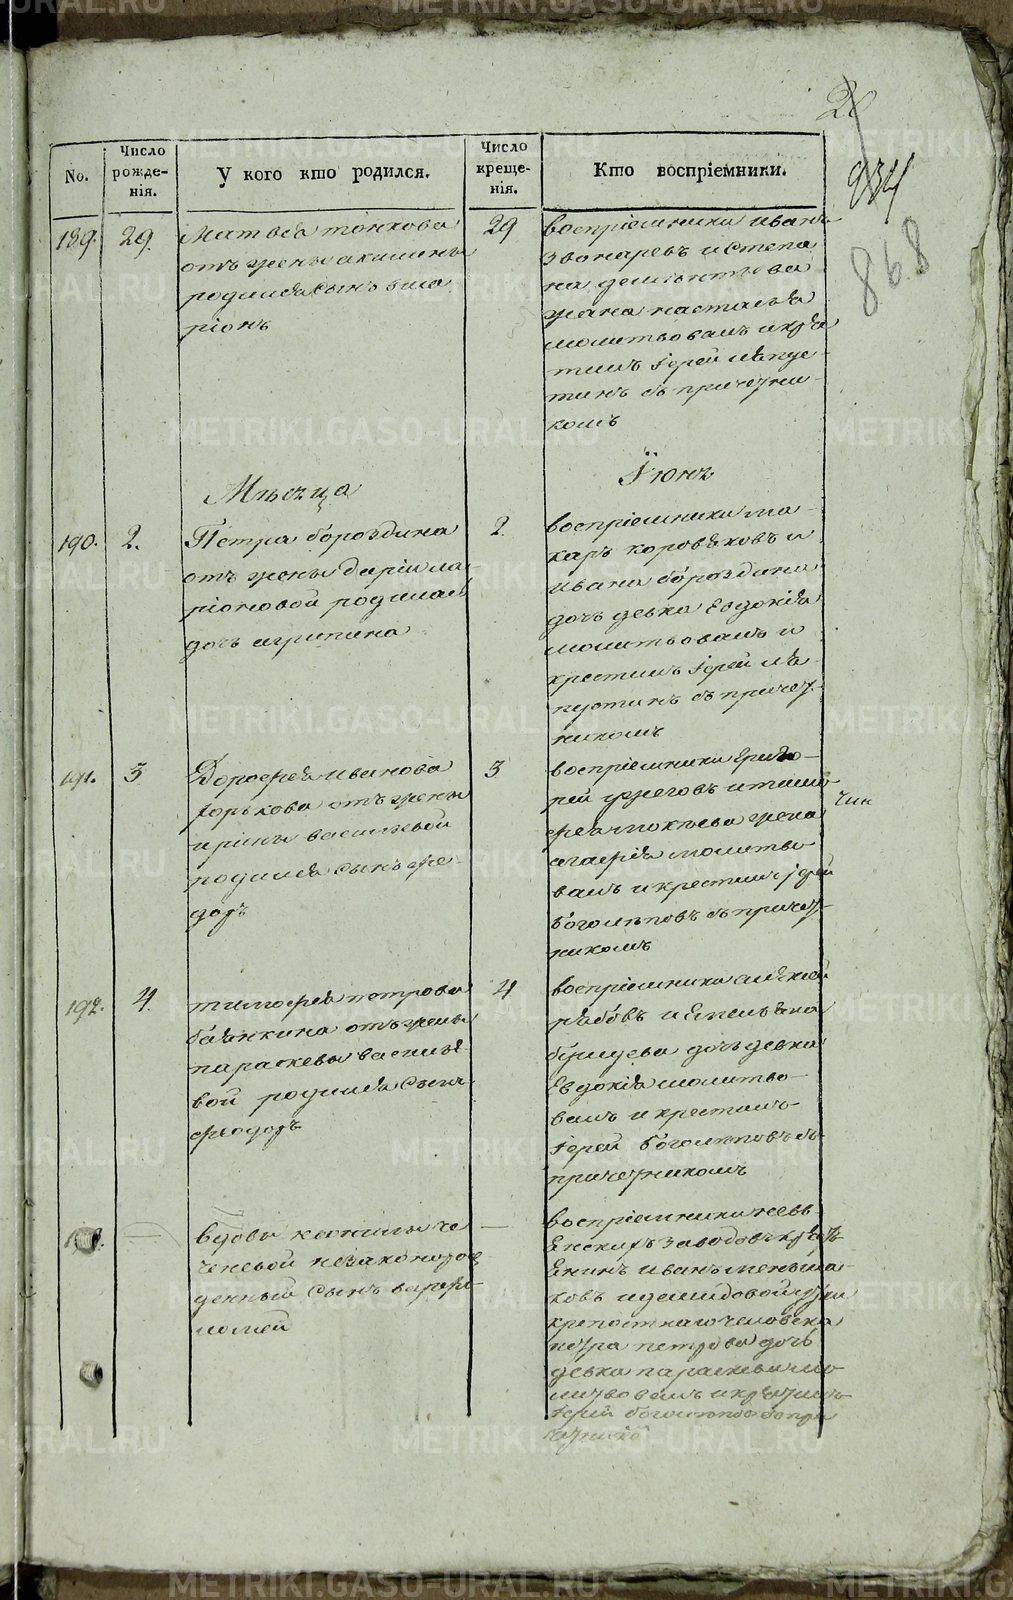 20
934
868
No.
Число рожде-нія.
У кого кто родился.
Число креще-нія.
Кто воспріемники.
189.
29.
Матвеа тонкова
отъ жены акилины
родился сынъ ила
ріонъ
29
воспріемники иванъ
звонаревъ и степа
на дементьева
жена настасья
молитвовалъ и кре
тилъ Іерей
съ причетни
комъ
Мѣсяца
Іюнь
190.
2.
Петра бороздина
отъ жены дарьи ла
ріоновой родилась
дочь агрипина
2.
воспріемники ма
каръ коровяковъ и
ивана бороздина
дочь девка Евдокія
молитвовалъ и
крестилъ Іерей
съ причет
никомъ
191.
3
Дорофея иванова
горькова отъ жены
ирины васильевой
родился сынъ фе
доръ
3
воспріемники Григо
рей и тимо
фея мокѣева жена
агафія молитво
валъ и крестилъ іерей
боголѣповъ съ причет
никомъ
чин
192.
4.
тимофея петрова
баянкина отъ жены
параскевы василье
вой родился сынъ
феодоръ
4
воспріемники алексей
рябовъ и Емельяна
дочь девка
Евдокія молитво
валъ и крестилъ
Іерей боголѣповъ съ
причетникомъ
вдовы
незаконорож
денный сынъ варфо
ломей
воспріемники невь
янскихъ заводовъ
иванъ меньша
ковъ и демидовой
крепостнаго человека
петра петрова дочь
девка параскевья мо
литвовалъ и крестилъ
Іерей боголѣповъ съ при
четнико
METRIKI.GASO-URAL.RU